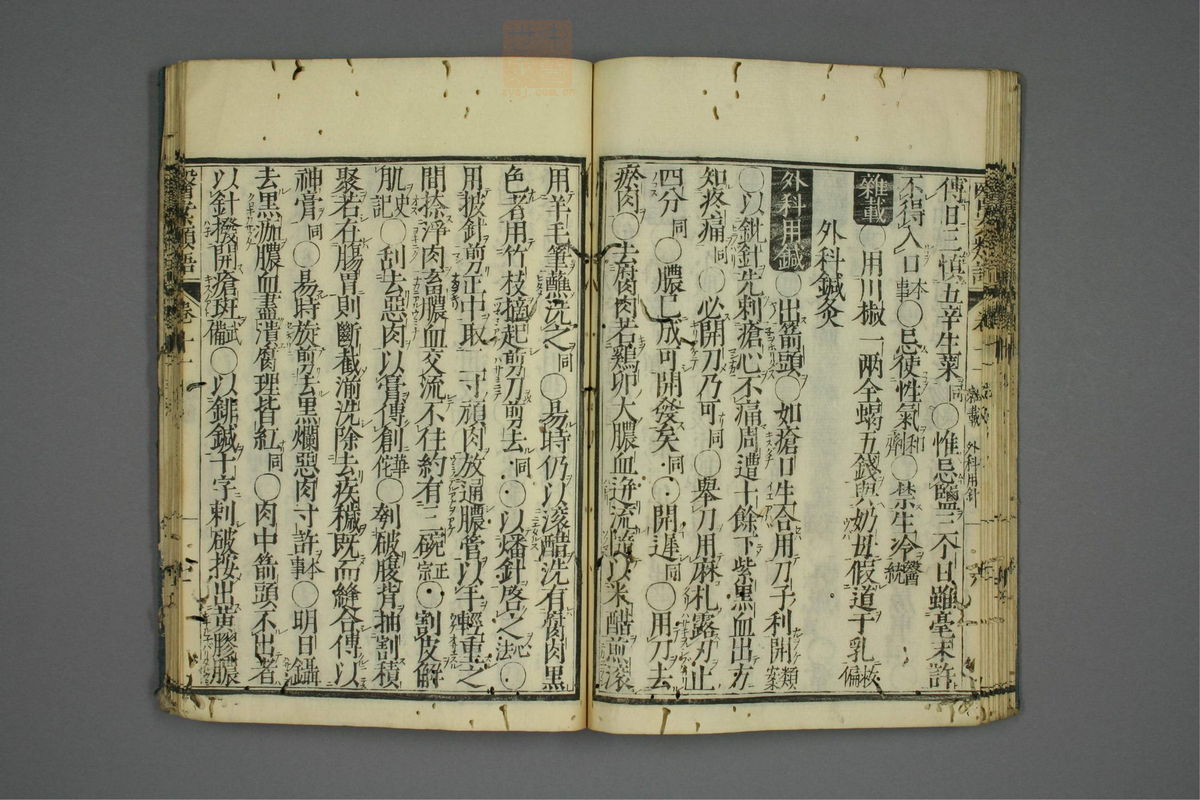 傅曰三慎五辛生菜同○惟忌鹽三个日雖毫末許
不得入口本事○忌使性氣和劑○禁生冷醫統
雜載○用川椒一兩全蝎五錢與奶母假道于乳祕偏
外科鍼灸
外科用鍼○出箭頭○如瘡口生合用刀子利開類案
○以鈗針先刺瘡心不痛周遭十餘下紫黑血出方
知疼痛同○必開刀乃可同○舉刀用麻札露刃止
四分同○膿已成可開發矣同○開遲同○用刀去
瘀肉○去腐肉肉若鷄卵大膿血迸流前以米醋煎滾
用羊毛筆蘸洗之同○易時仍以滚醋洗有腐肉黑
色者用竹枝撬起剪刀剪去同○以燔針啓之法心○
用披針剪正中取一寸頑肉放通膿管以手輕重之
間捺渖肉畜膿血交流不住約有三碗正宗○割皮解
肌史記○刮去惡肉以膏傅創華佗○刳破腹背抽割積
聚若在腸胃則斷截湔洗除去疾穢既而縫合傅以
神膏同○易時旋剪去黑爛惡肉寸許本事○明日鑷
去黑泇膿血盡潰腐理皆紅同○肉中箭頭不出者
以針撥開瘡斑備試○以鋒鍼十字刺破按出黃膠膿
雜載
外科用針